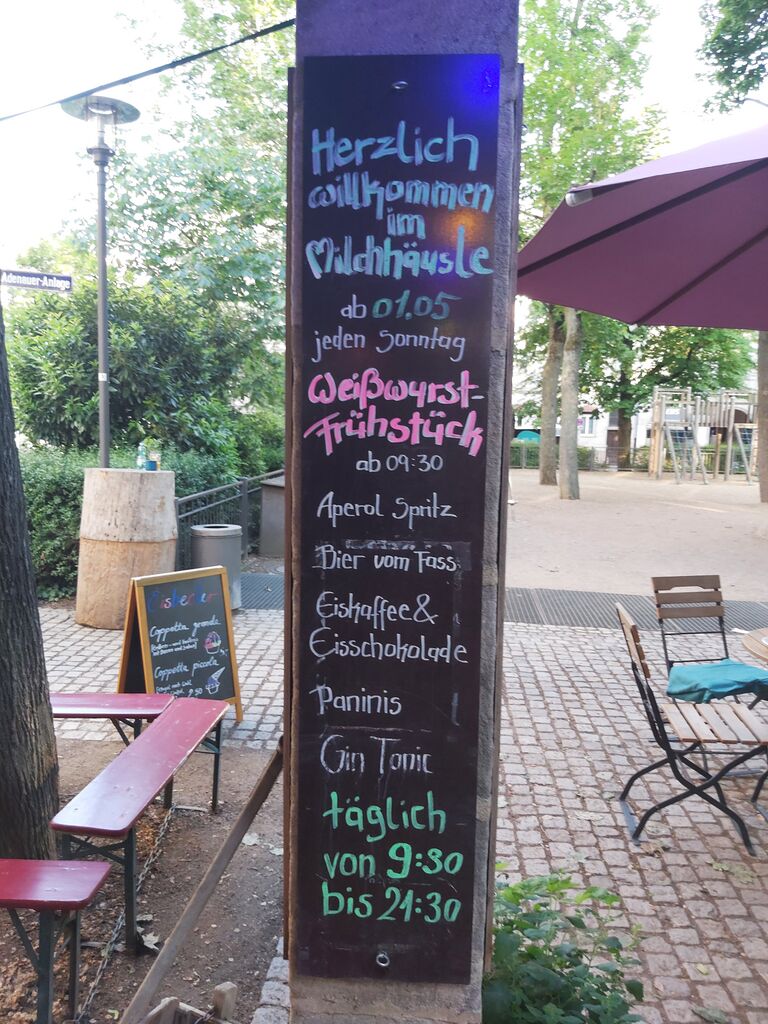 Adenauer-Anlage
Herzlich
willkommen
im
Milchhäusle
ab 01.05
jeden Sonntag
Weißwurst-
Frühstück
ab 09:30
Aperol Spritz
Bier vom Fass
Eiskaffee &
Eisschokolade
Paninis
Gin Tonic
täglich
von 9:30
bis 21:30
Eisbecher
Coppetta grande
Coppetta piccola